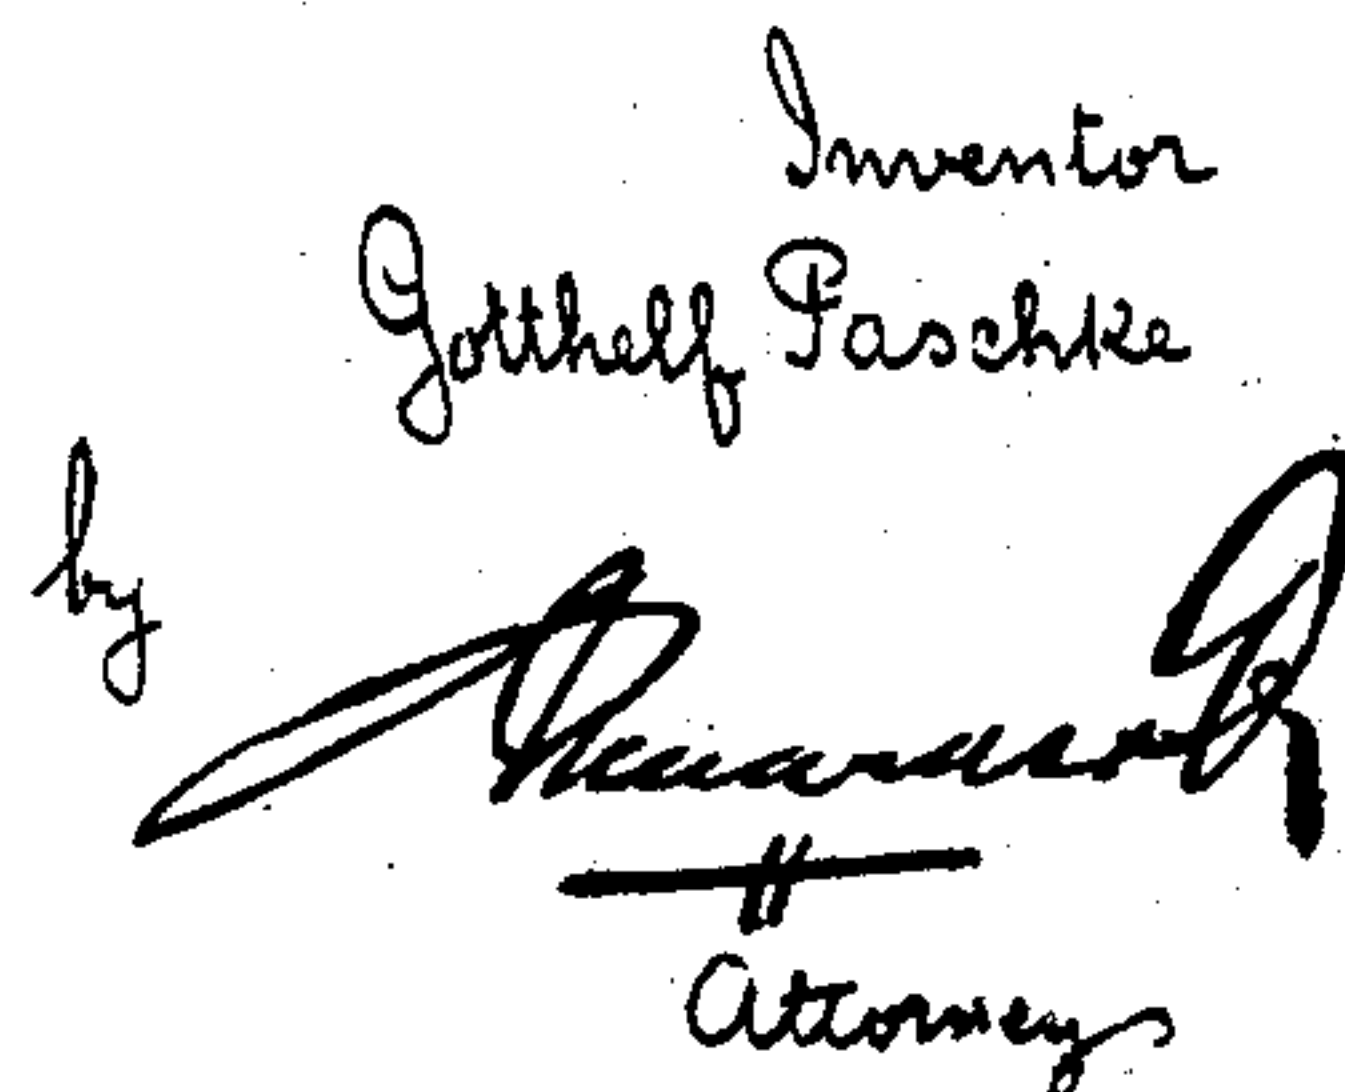 Inventor
Gotthelf Paschke
by
Attorney